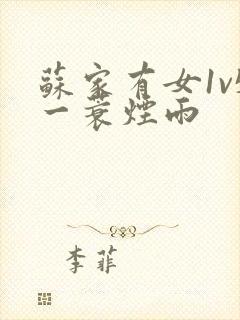 蘇家有女1v
一蓑煙雨
李菲